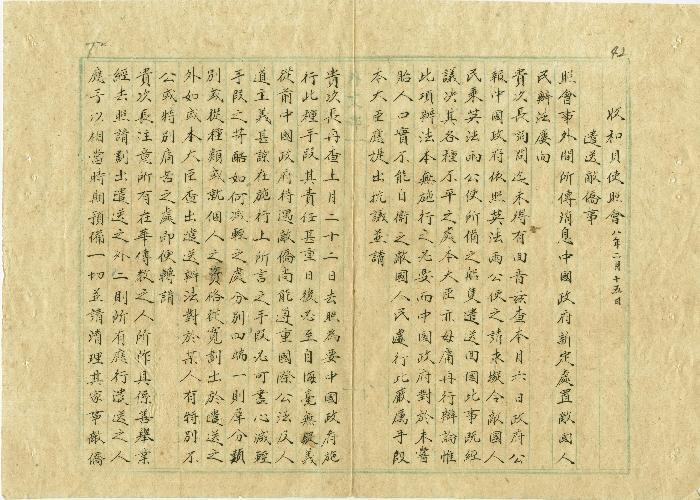 42
收和貝使照會 八年二月十五日
遣送敵僑事
照會事外間所傳消息中國政府新定處置敵國人
民辦法屢向
貴次長詢問迄未得有回音茲查本月六日政府公
報中國政府依照英法兩公使之請求擬令敵國人
民乘英法兩公使所備之船隻遣送回國此事既經
議決其各種不平之處本大臣亦毋庸再行辯論惟
此項辦法本無施行之必要而中國政府對於未嘗
貽人口實不能自衛之敵國人民遽行此嚴厲手段
本大臣應提出抗議並請
貴次長再查上月二十二日去照為要中國政府施
行此種手段其責任甚重日後恐至自悔毫無疑義
從前中國政府待遇敵僑尚能遵重國際公法及人
道主義甚諒在施行上所言之手段尤可盡心減輕
手段之苛酷如何減輕之處分別四端一則分類
別或從種類或就個人之資格從寬劃出於遣送之
外如或本大臣查出遣送辦法對於某人有特別不
公或特別痛苦之處即便轉請
貴次長注意所有在華傳教之人所作具係善舉業
經去照請劃出遣送之外二則所有應行遣送之人
應予以相當時期預備一切並請清理其家事敵僑